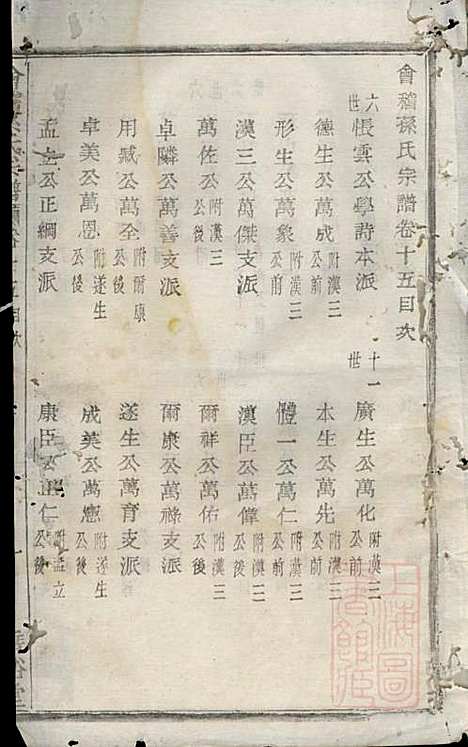 會稽孫氏宗譜卷十五目次
六世 悵雲公學詩本派
十一世 廣生公萬化 附漢三公前
德生公萬成 附漢三公前
本生公萬先 附漢三公前
形生公萬象 附漢三公前
體一公萬仁 附漢三公前
漢三公萬傑支派
漢臣公萬偉 附漢三公後
萬佐公 附漢三公後
爾祥公萬佑 附漢三公後
卓隣公萬善支派
爾康公萬祿支派
用臧公萬全 附爾康公後
遂生公萬育支派
卓美公萬恩 附遂生公後
成美公萬憲 附遂生公後
孟立公正綱支派
康臣公正仁 附孟立公後
上海圖書館藏